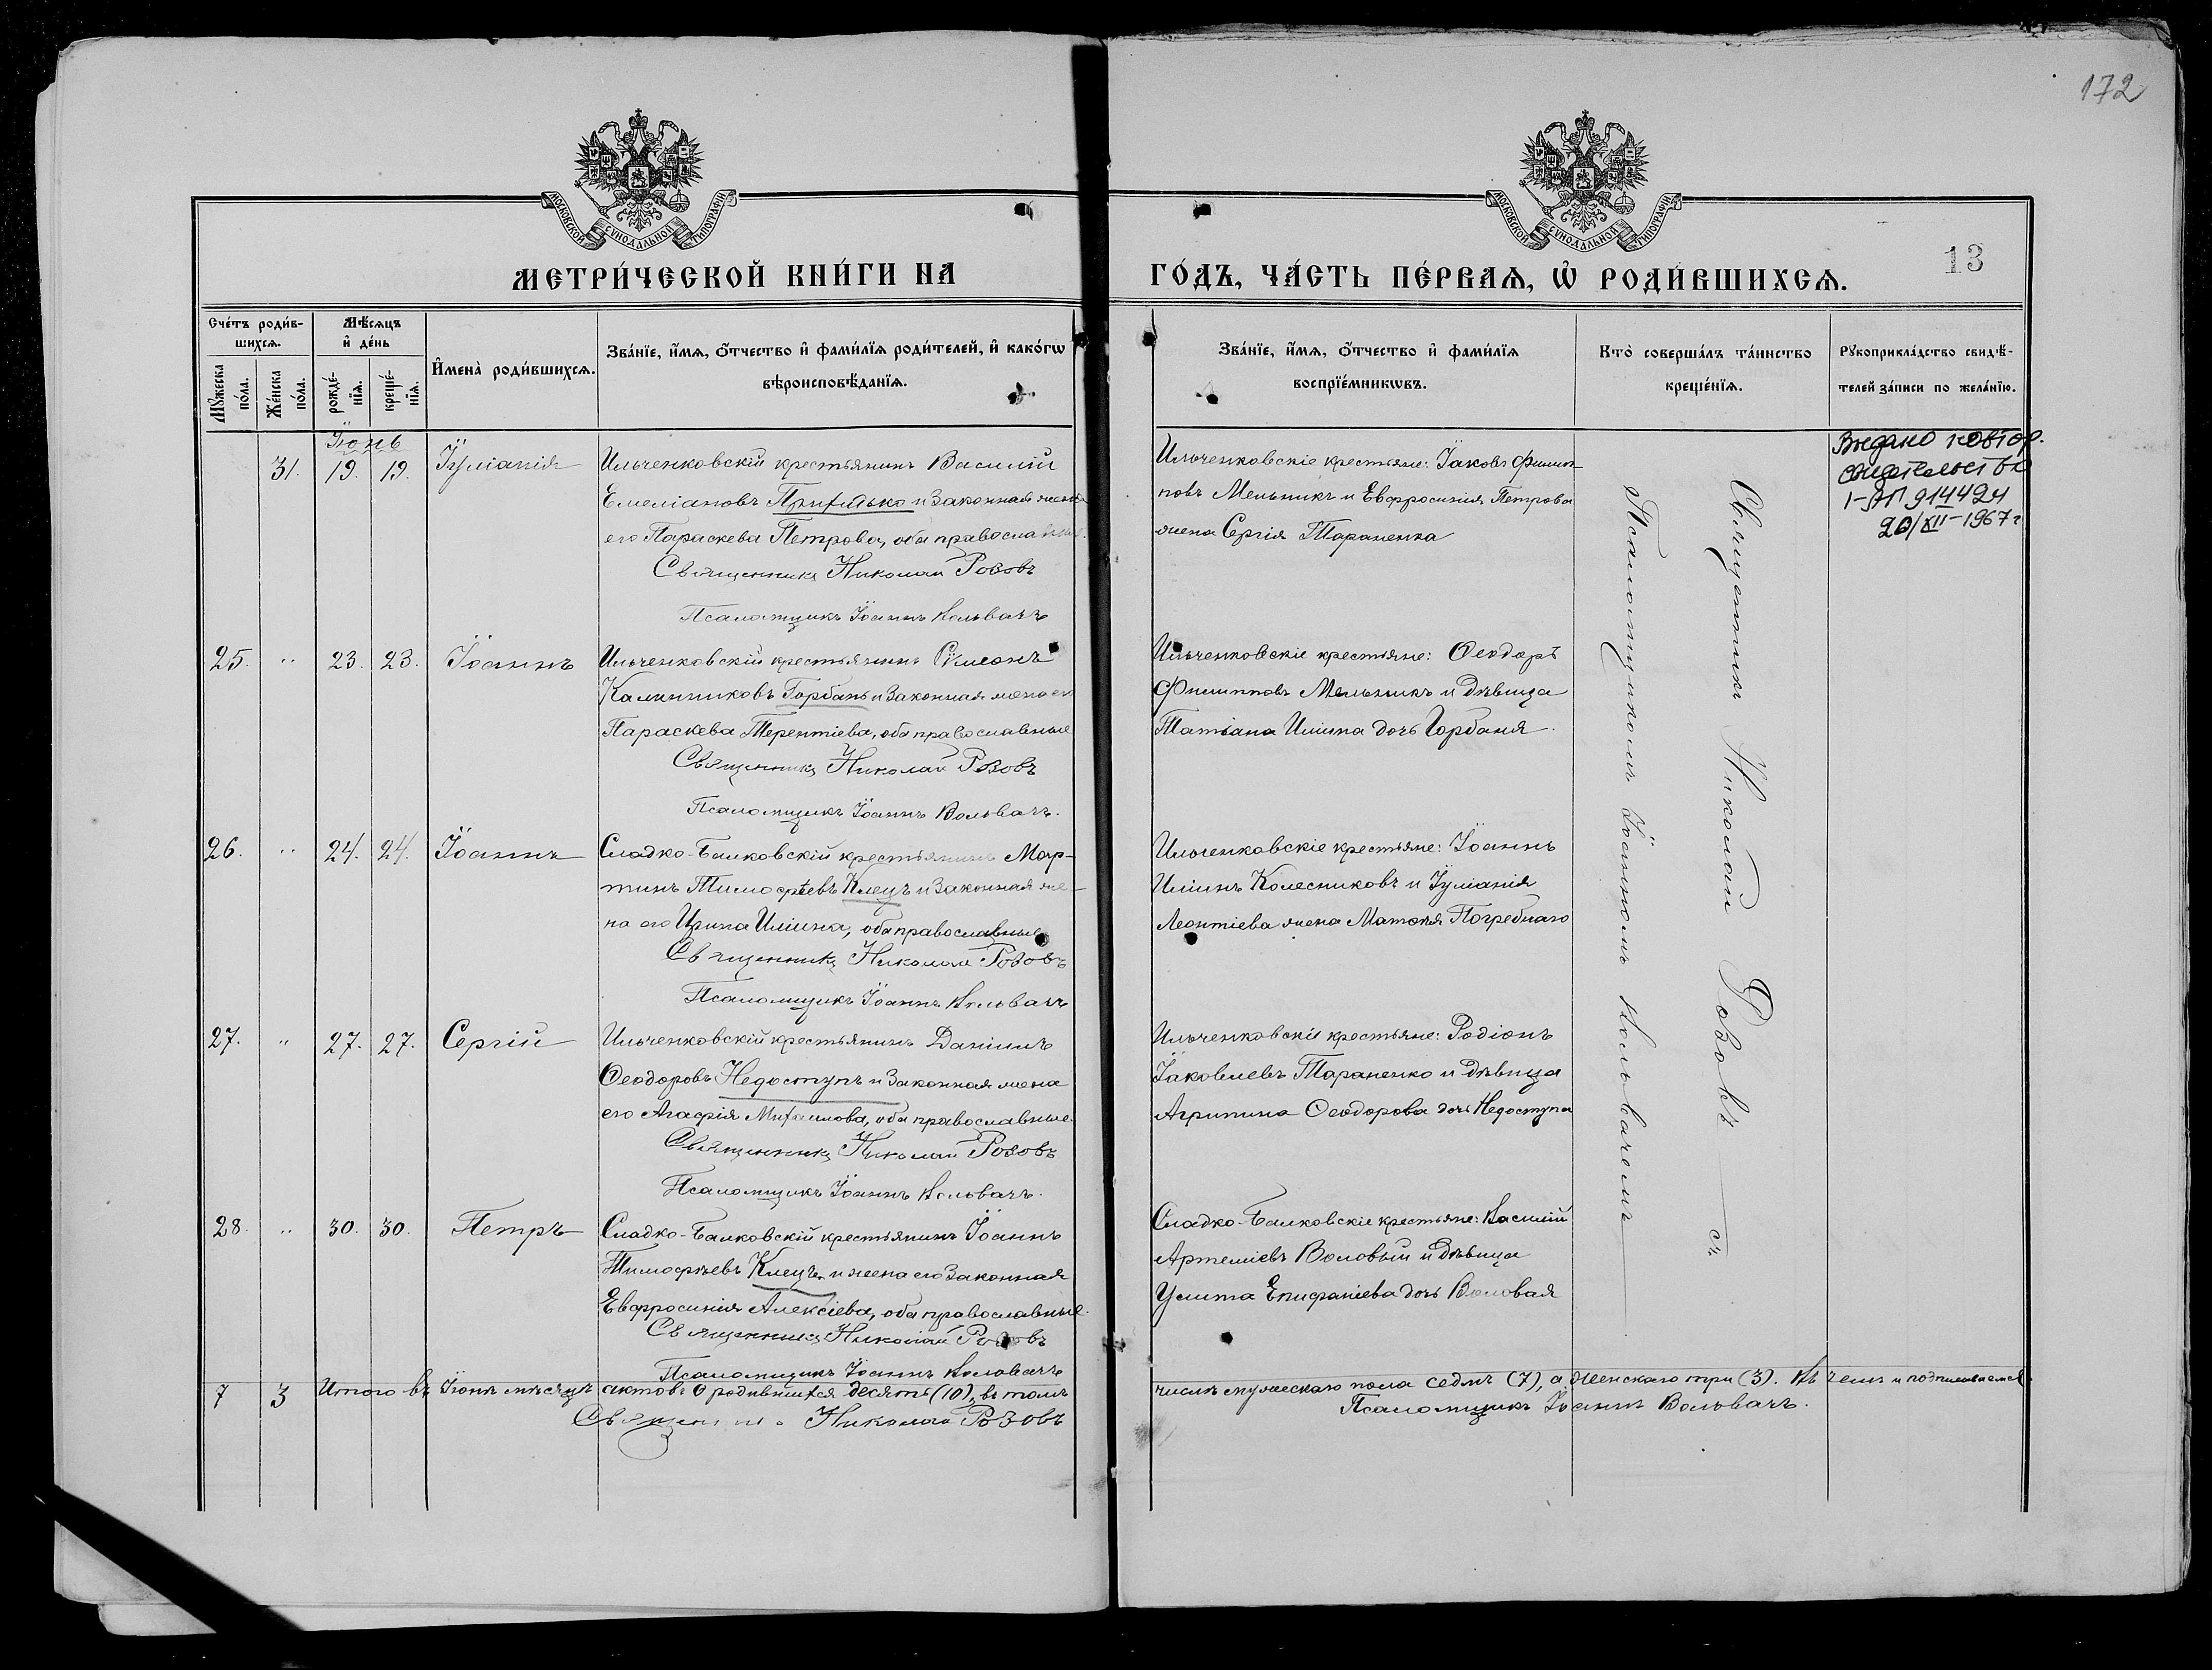 172
МОСКОВСКОЙ СѴНОДАЛЬНОЙ ТИПОГРАФІИ
МОСКОВСКОЙ СѴНОДАЛЬНОЙ ТИПОГРАФІИ
13
МЕТРИ́ЧЕСКОЙ КНИ́ГИ НА
ГО́ДЪ, ЧА́СТЬ ПЕ́РВАѦ, Ѡ҆ РОДИ́ВШИХСѦ.
Сче́тъ роди́в-
шихсѧ.
Мѣ́сѧцъ
и҆ де́нь
Мꙋ́жеска
по́ла.
Же́нска
по́ла.
рожде́-
нїѧ.
креще́-
нїѧ.
И҆мена̀ роди́вшихсѧ.
Зва́нїе, и҆́мѧ, ѻ҆́тчество и҆ фами́лїѧ роди́телей, и҆ како́гѡ
вѣроисповѣ́данїѧ.
Зва́нїе, и҆́мѧ, ѻ҆́тчество и҆ фами́лїѧ
воспрїе́мникѡвъ.
Кто̀ соверша́лъ та́инство
креще́нїѧ.
Рꙋкоприкла́дство свидѣ́-
телей за́писи по жела́нїю.
Іюнь
31. 19. 19. Іуліанія
Ильченковскій крестьянинъ Василій
Емеліановъ Прихидько и законная жена
его Параскева Петрова, оба православные.
Священникъ Николай Розовъ
Псаломщикъ Іоаннъ Вольвачъ
Ильченковскіе крестьяне: Іаковъ Филип-
повъ Мельникъ и Евфросинія Петрова
жена Сергія Тараненка
Выдано повтор.
свидетельство
I-ЯП 914424
20/XII-1967г
25. " 23. 23. Іоаннъ
Ильченковскій крестьянинъ Симеонъ
Калинниковъ Горбань и законная жена его
Параскева Терентіева, оба православные
Священникъ Николай Розовъ
Псаломщикъ Іоаннъ Вольвачъ.
Ильченковскіе крестьяне: Ѳеодоръ
Филипповъ Мельникъ и дѣвица
Татіана Иліина дочь Горбаня.
26. " 24. 24. Іоаннъ
Сладко-Балковскій крестьянинъ Мар-
тинъ Тимофѣевъ Клецъ и законная же-
на его Ирина Иліина, оба православные
Священникъ Николай Розовъ
Псаломщикъ Іоаннъ Вольвачъ
Ильченковскіе крестьяне: Іоаннъ
Иліинъ Колесниковъ и Іуліанія
Леонтіева жена Матѳея Погребнаго
27. " 27. 27. Сергій
Ильченковскій крестьянинъ Даніилъ
Ѳеодоровъ Недоступъ и законная жена
его Агафія Михаилова, оба православные.
Священникъ Николай Розовъ
Псаломщикъ Іоаннъ Вольвачъ.
Ильченковскіе крестьяне: Родіонъ
Іаковлевъ Тараненко и дѣвица
Агрипина Ѳеодорова дочь Недоступа
28. " 30. 30. Петръ
Сладко-Балковскій крестьянинъ Іоаннъ
Тимофѣевъ Клецъ и жена его законная
Евфросинія Алексіева, оба православные.
Священникъ Николай Розовъ
Псаломщикъ Іоаннъ Вольвачъ
Сладко-Балковскіе крестьяне: Василій
Артеміевъ Воловый и дѣвица
Улита Епифаніева дочь Воловая
Священникъ Николай Розовъ съ
Псаломщикомъ Іоанномъ Вольвачемъ
7 3 Итого въ Іюнѣ мѣсяцѣ актовъ о родившихся десять (10), въ томъ
числѣ мужескаго пола седмь (7), а женскаго три (3). Въ чемъ и подписываемся
Священникъ Николай Розовъ
Псаломщикъ Іоаннъ Вольвачъ.